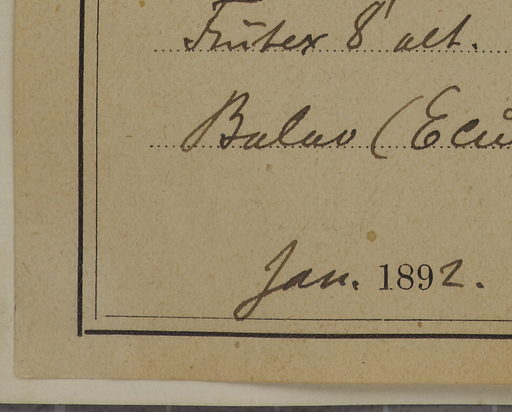 Frutex 8' alt.
Balao (Ecu
Jan. 1892.